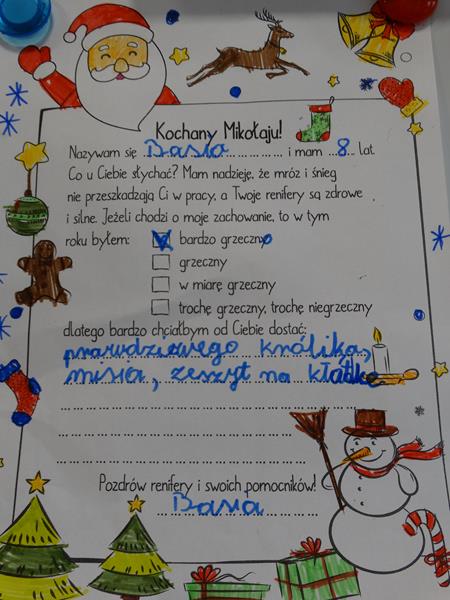 Kochany Mikołaju!
Nazywam się Basia i mam 8 lat.
Co u Ciebie słychać? Mam nadzieję, że mróz i śnieg
nie przeszkadzają Ci w pracy, a Twoje renifery są zdrowe
i silne. Jeżeli chodzi o moje zachowanie, to w tym
roku byłem: bardzo grzeczny
grzeczny
w miarę grzeczny
trochę grzeczny, trochę niegrzeczny
dlatego bardzo chciałbym od Ciebie dostać:
prawdziwego królika,
misia, zeszyt na kłódkę
Pozdrów renifery i swoich pomocników!
Basia